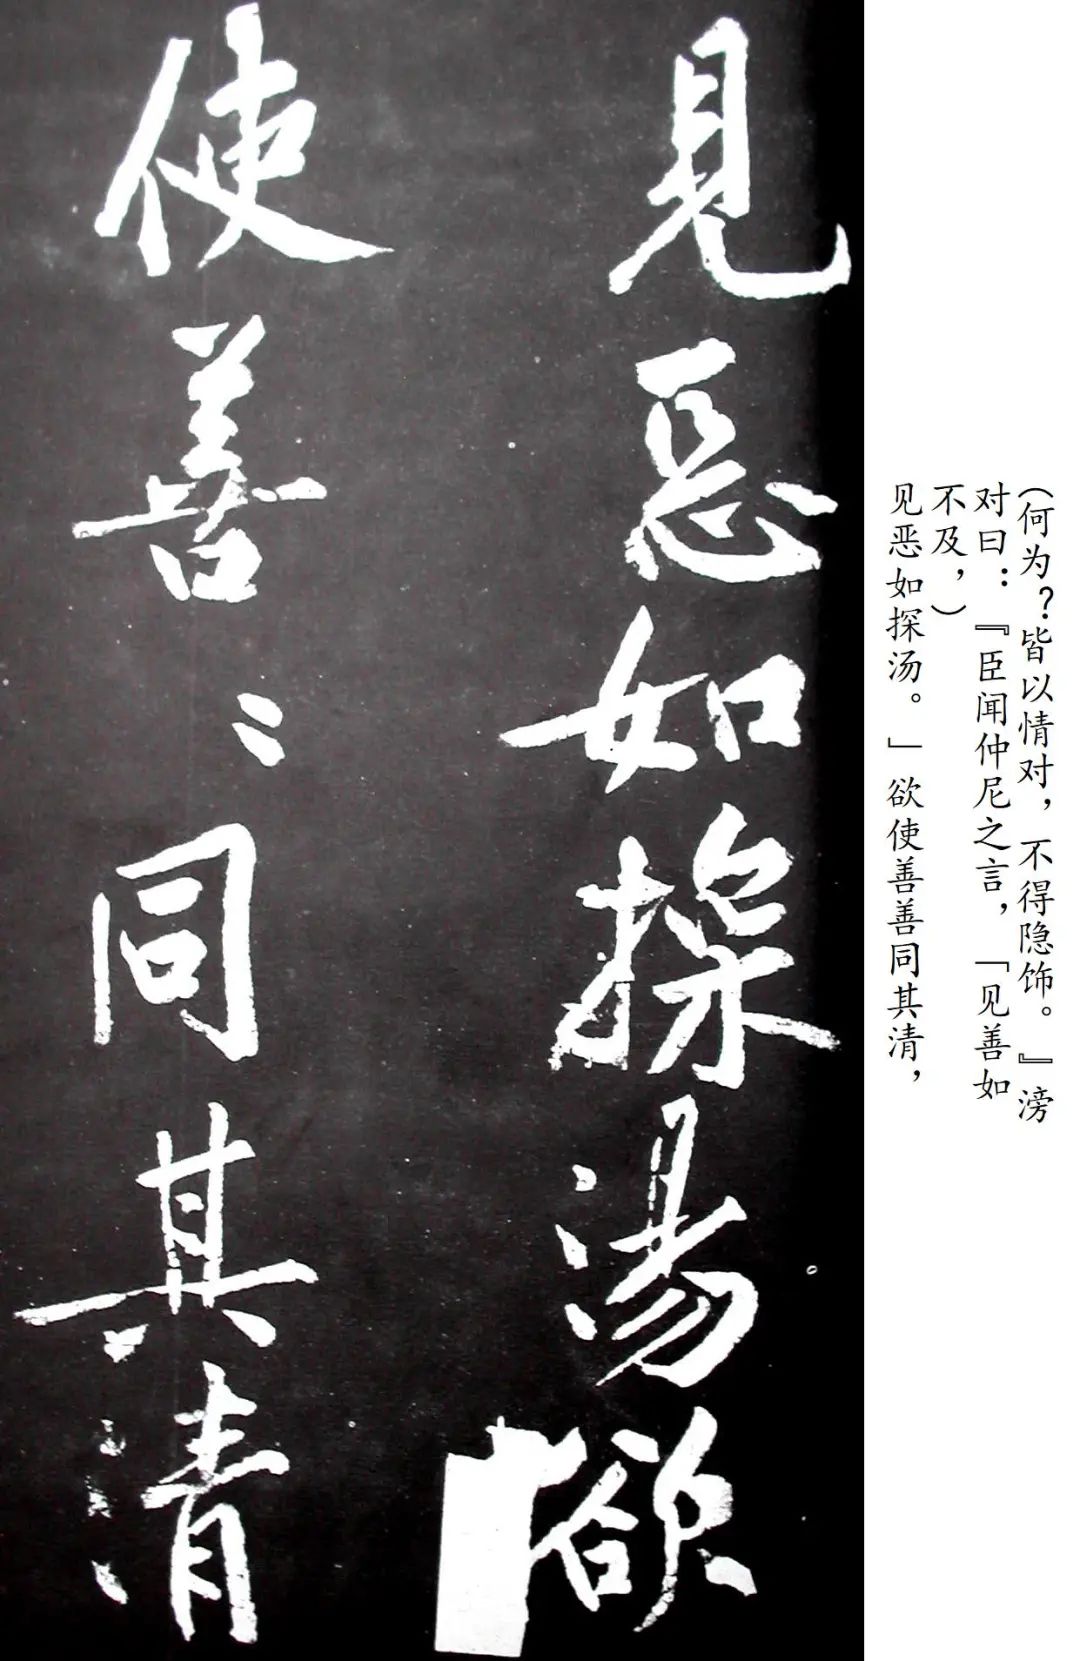 (何为？皆以情对，不得隐饰。』滂
对曰：『臣闻仲尼之言，「见善如
不及，)
见恶如探汤。」欲使善善同其清，
見惡如探湯欲
使善〻同其清